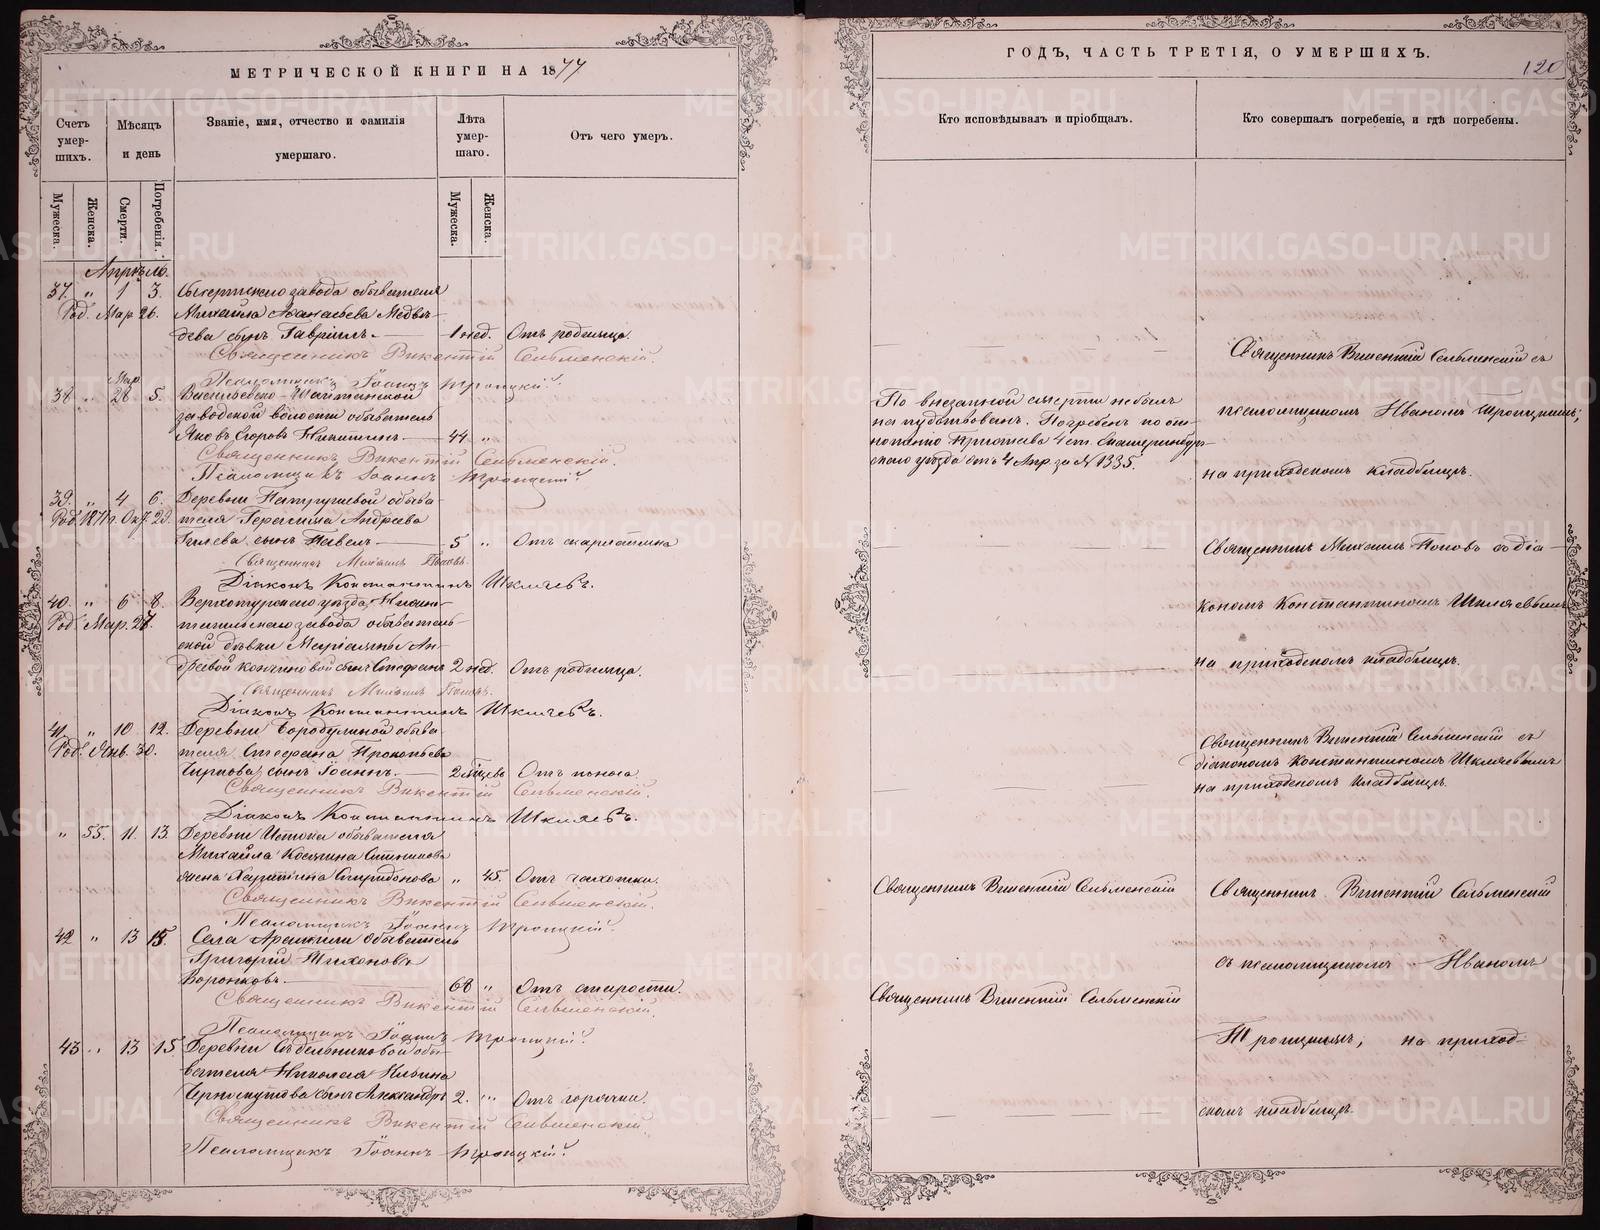 МЕТРИЧЕСКОЙ КНИГИ НА 1877
Счетъ умерших.
Мѣсяцъ и день
Званіе, имя, отчество и фамилія умершаго.
Лѣта умершаго.
Отъ чего умеръ.
Мужеска.
Женска.
Смерти.
Погребенія.
Мужеска.
Женска.
Апрѣль.
37. " 1 3. Сысертскаго завода обывателя
Род. Мар. 26. Михаила Аѳанасьева Медвѣ-
дева сынъ Гавріилъ. 1 нед. Отъ родимца.
Священникъ Викентій Сельменскій.
Псаломщикъ Іоаннъ Троицкій.
38 " Мар. 28 5.
заводской волости обыватель
Яковъ Егоровъ Никитинъ 44 "
Священникъ Викентій Сельменскій.
Псаломщикъ Іоаннъ Троицкій.
39. " 4 6. Деревни Патрушевой обыва-
Род. 1871 г. Окт. 29. теля Герасима Андреева
сынъ Павелъ 5 " Отъ скарлатина
Священникъ Михаилъ Поповъ.
Діаконъ Константинъ Шкляевъ.
40. " 6 8. Верхотурскаго уѣзда, Нижне-
Род. Мар. 27. тагильскаго завода обыватель-
ской дѣвки Маріамны Ан-
дреевой сынъ Стефанъ 2 нед. Отъ родимца.
Священникъ Михаилъ Поповъ.
Діаконъ Константинъ Шкляевъ.
41. " 10 12. Деревни Бородулиной обыва-
Род. Янв. 30. теля Стефана Прокопьева
Чиркова сынъ Іоаннъ. 2 мѣсяца Отъ поноса.
Священникъ Викентій Сельменскій.
Діаконъ Константинъ Шкляевъ.
" 55. 11. 13. Деревни Истока обывателя
Михаила Космина Ситникова
жена Харитина Спиридонова " 45. Отъ чахотки.
Священникъ Викентій Сельменскій.
Псаломщикъ Іоаннъ Троицкій.
42 " 13 15. Села Арамили обыватель
Григорій Тихоновъ
Воронковъ. 68 " Отъ старости.
Священникъ Викентій Сельменскій.
Псаломщикъ Іоаннъ Троицкій.
43 " 13 15. Деревни Сѣдельниковой обы-
вателя Николая Ильина
Черноскутова сынъ Александръ 2. " Отъ горячки.
Священникъ Викентій Сельменскій.
Псаломщикъ Іоаннъ Троицкій.
ГОДЪ, ЧАСТЬ ТРЕТІЯ, О УМЕРШИХЪ.
120
Кто исповѣдывалъ и пріобщалъ.
Кто совершалъ погребеніе, и гдѣ погребены.
Священникъ Викентій Сельменскій съ
По внезапной смерти не былъ
псаломщикомъ Иваномъ Троицкимъ;
напутствованъ. Погребенъ по от-
ношенію Пристава 4 ст. Екатеринбург-
скаго уѣзда отъ 4 Апр. за № 1335.
на приходскомъ кладбищѣ.
Священникъ Михаилъ Поповъ съ діа-
кономъ Константиномъ Шкляевымъ
на приходскомъ кладбищѣ.
Священникъ Викентій Сельменскій съ
діакономъ Константиномъ Шкляевымъ
на приходскомъ кладбищѣ.
Священникъ Викентій Сельменскій
Священникъ Викентій Сельменскій
съ псаломщикомъ Иваномъ
Священникъ Викентій Сельменскій
Троицкимъ, на приход-
скомъ кладбищѣ.
METRIKI.GASO-URAL.RU